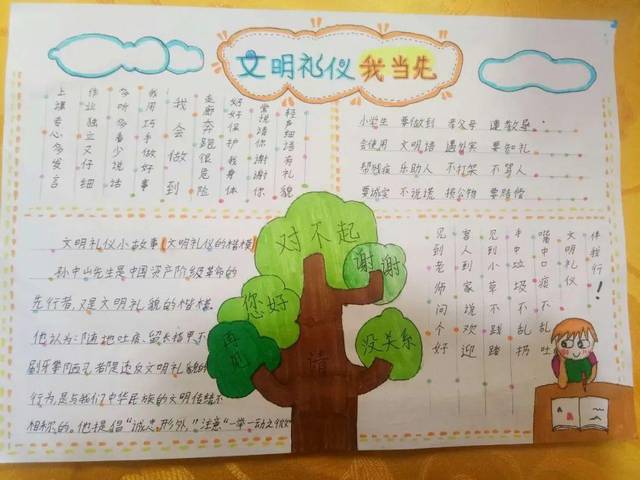 文明礼仪 我当先
我会做到
轻声细语有礼貌
爱说请你谢谢你
好好保护我身体
走廊奔跑很危险
我用巧手做好事
多听多看少说话
作业独立又仔细
上课专心多发言
小学生 要做到 孝父母 遵教导
会使用 文明语 遇外宾 要知礼
帮残疾 乐助人 不打架 不骂人
要诚实 不说谎 损公物 要赔偿
文明礼仪小故事(文明礼仪的楷模)
孙中山先生是中国资产阶级革命的
先行者,又是文明礼貌的楷模
他认为:随地吐痰、留长指甲、不
刷牙等陋习,都是违反文明礼貌的
行为,是与我们中华民族的文明传统不
相称的。他提倡“诚忠形外,”注意“一举一动之微
对不起
谢谢
您好
再见
没关系
请
伴我行!
文明礼仪
嘴中口痰不乱吐
手中垃圾不乱扔
见到小草不践踏
客人到家说欢迎
见到老师问个好